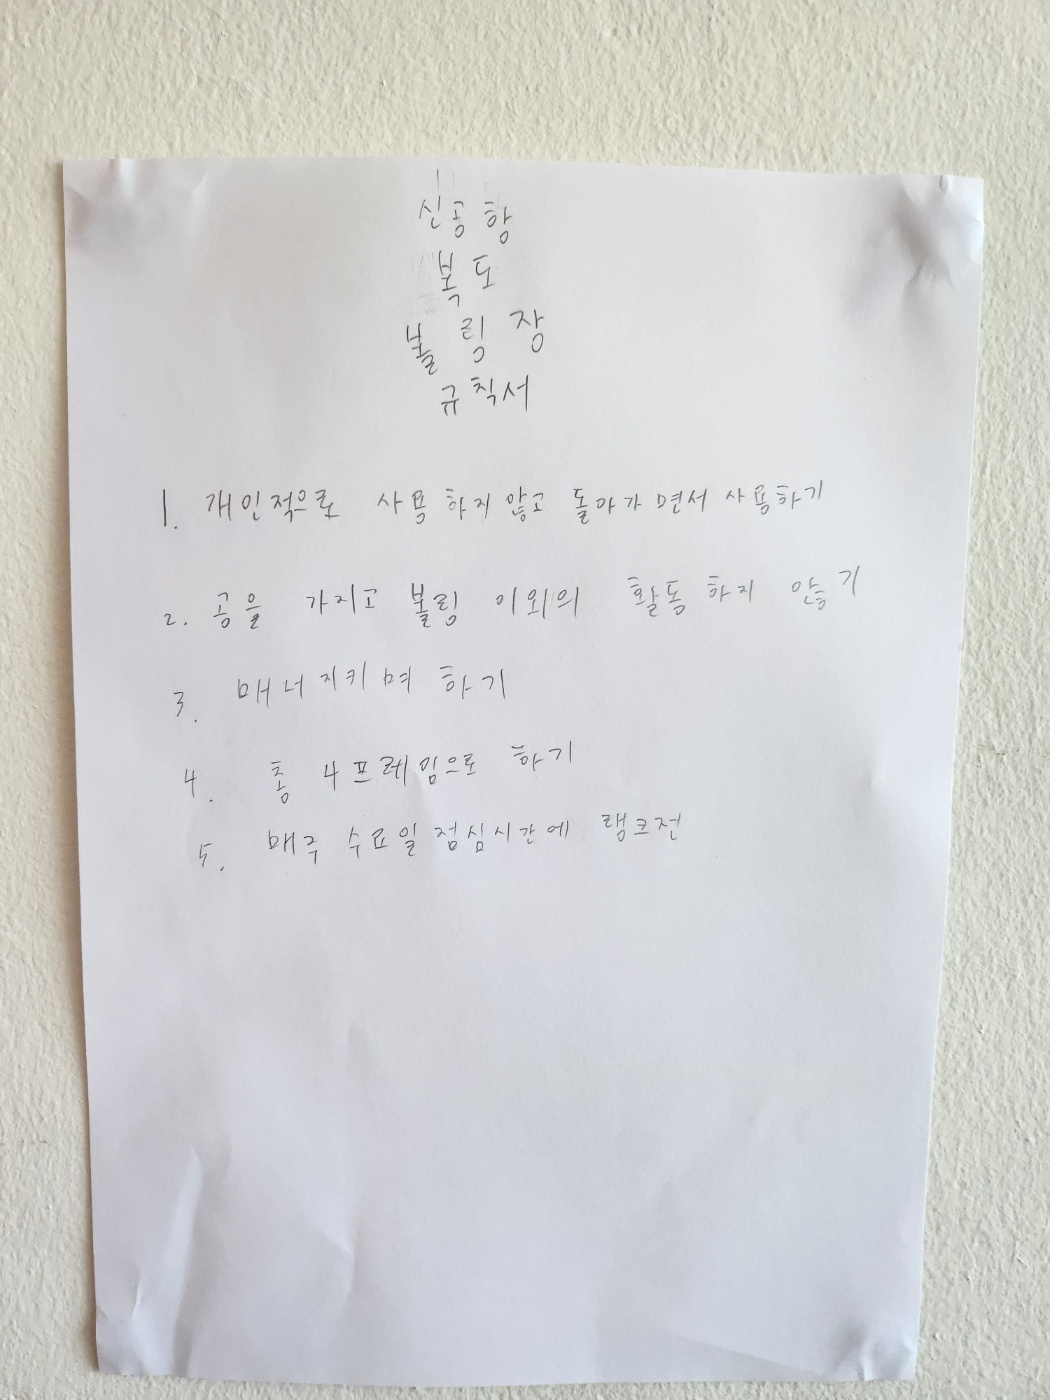 신공항
복도
볼링장
규칙서
1. 개인적으로 사용하지않고 돌아가면서 사용하기
2. 공을 가지고 볼링 이외의 활동하지 않기
3. 매너지키며 하기
4. 총 4프레임으로 하기
5. 매주 수요일 점심시간에 랭크전